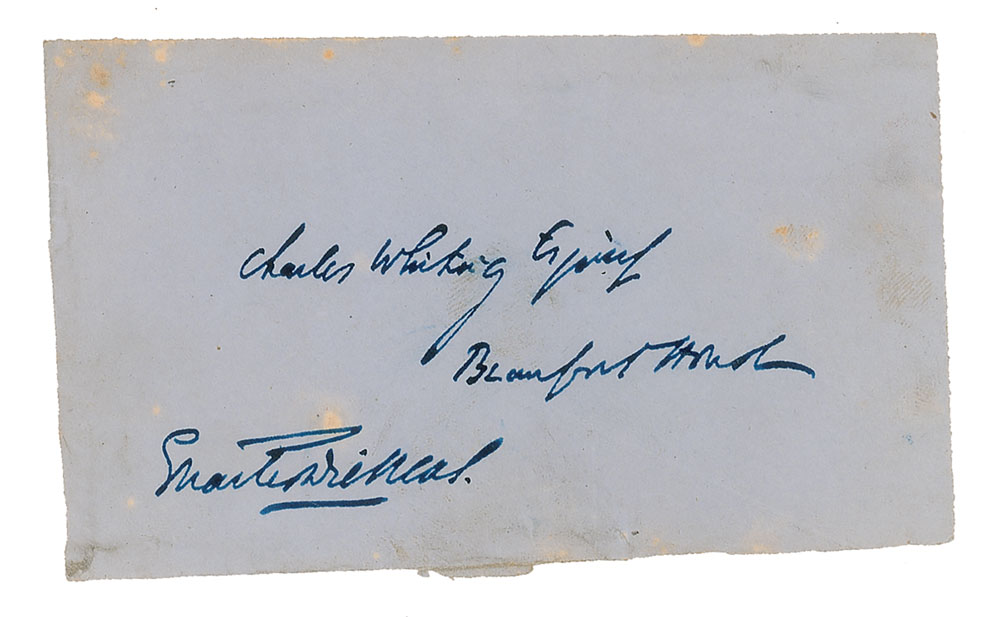 Charles Whiting Esquire
Beaufort House
Charles Dickens.